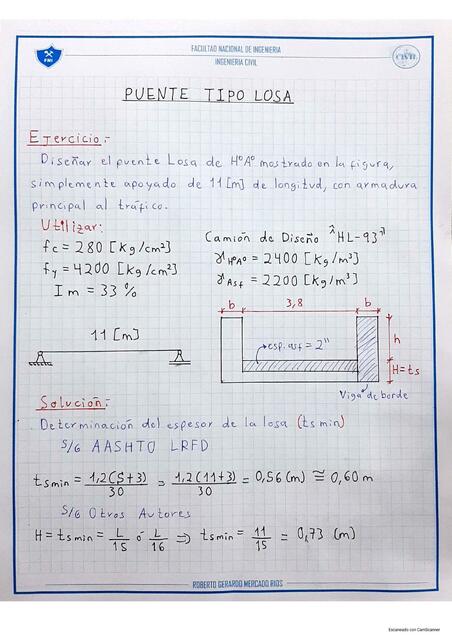 FACULTAD NACIONAL DE INGENIERIA
INGENIERIA CIVIL
FNI
CIVIL
PUENTE TIPO LOSA
Ejercicio:-
Diseñar el puente Losa de HºAº mostrado en la figura,
simplemente apoyado de 11[m] de longitud, con armadura
principal al tráfico.
Utilizar:
f'c = 280 [Kg/cm²]
fy = 4200 [Kg/cm²]
Im = 33 %
Camión de Diseño "HL-93"
γHºAº = 2400 [Kg/m³]
γAsf = 2200 [Kg/m³]
b 3,8 b
11 [m]
esp. asf = 2"
h
H=ts
Viga de borde
Solución:-
Determinación del espesor de la losa (ts min)
S/G AASHTO LRFD
ts min = 1,2(S+3)/30 = 1,2(11+3)/30 = 0,56 (m) ≅ 0,60 m
S/G Otros Autores
H = ts min = L/15 ó L/16 ⇒ ts min = 11/15 = 0,73 (m)
ROBERTO GERARDO MERCADO RIOS
Escaneado con CamScanner